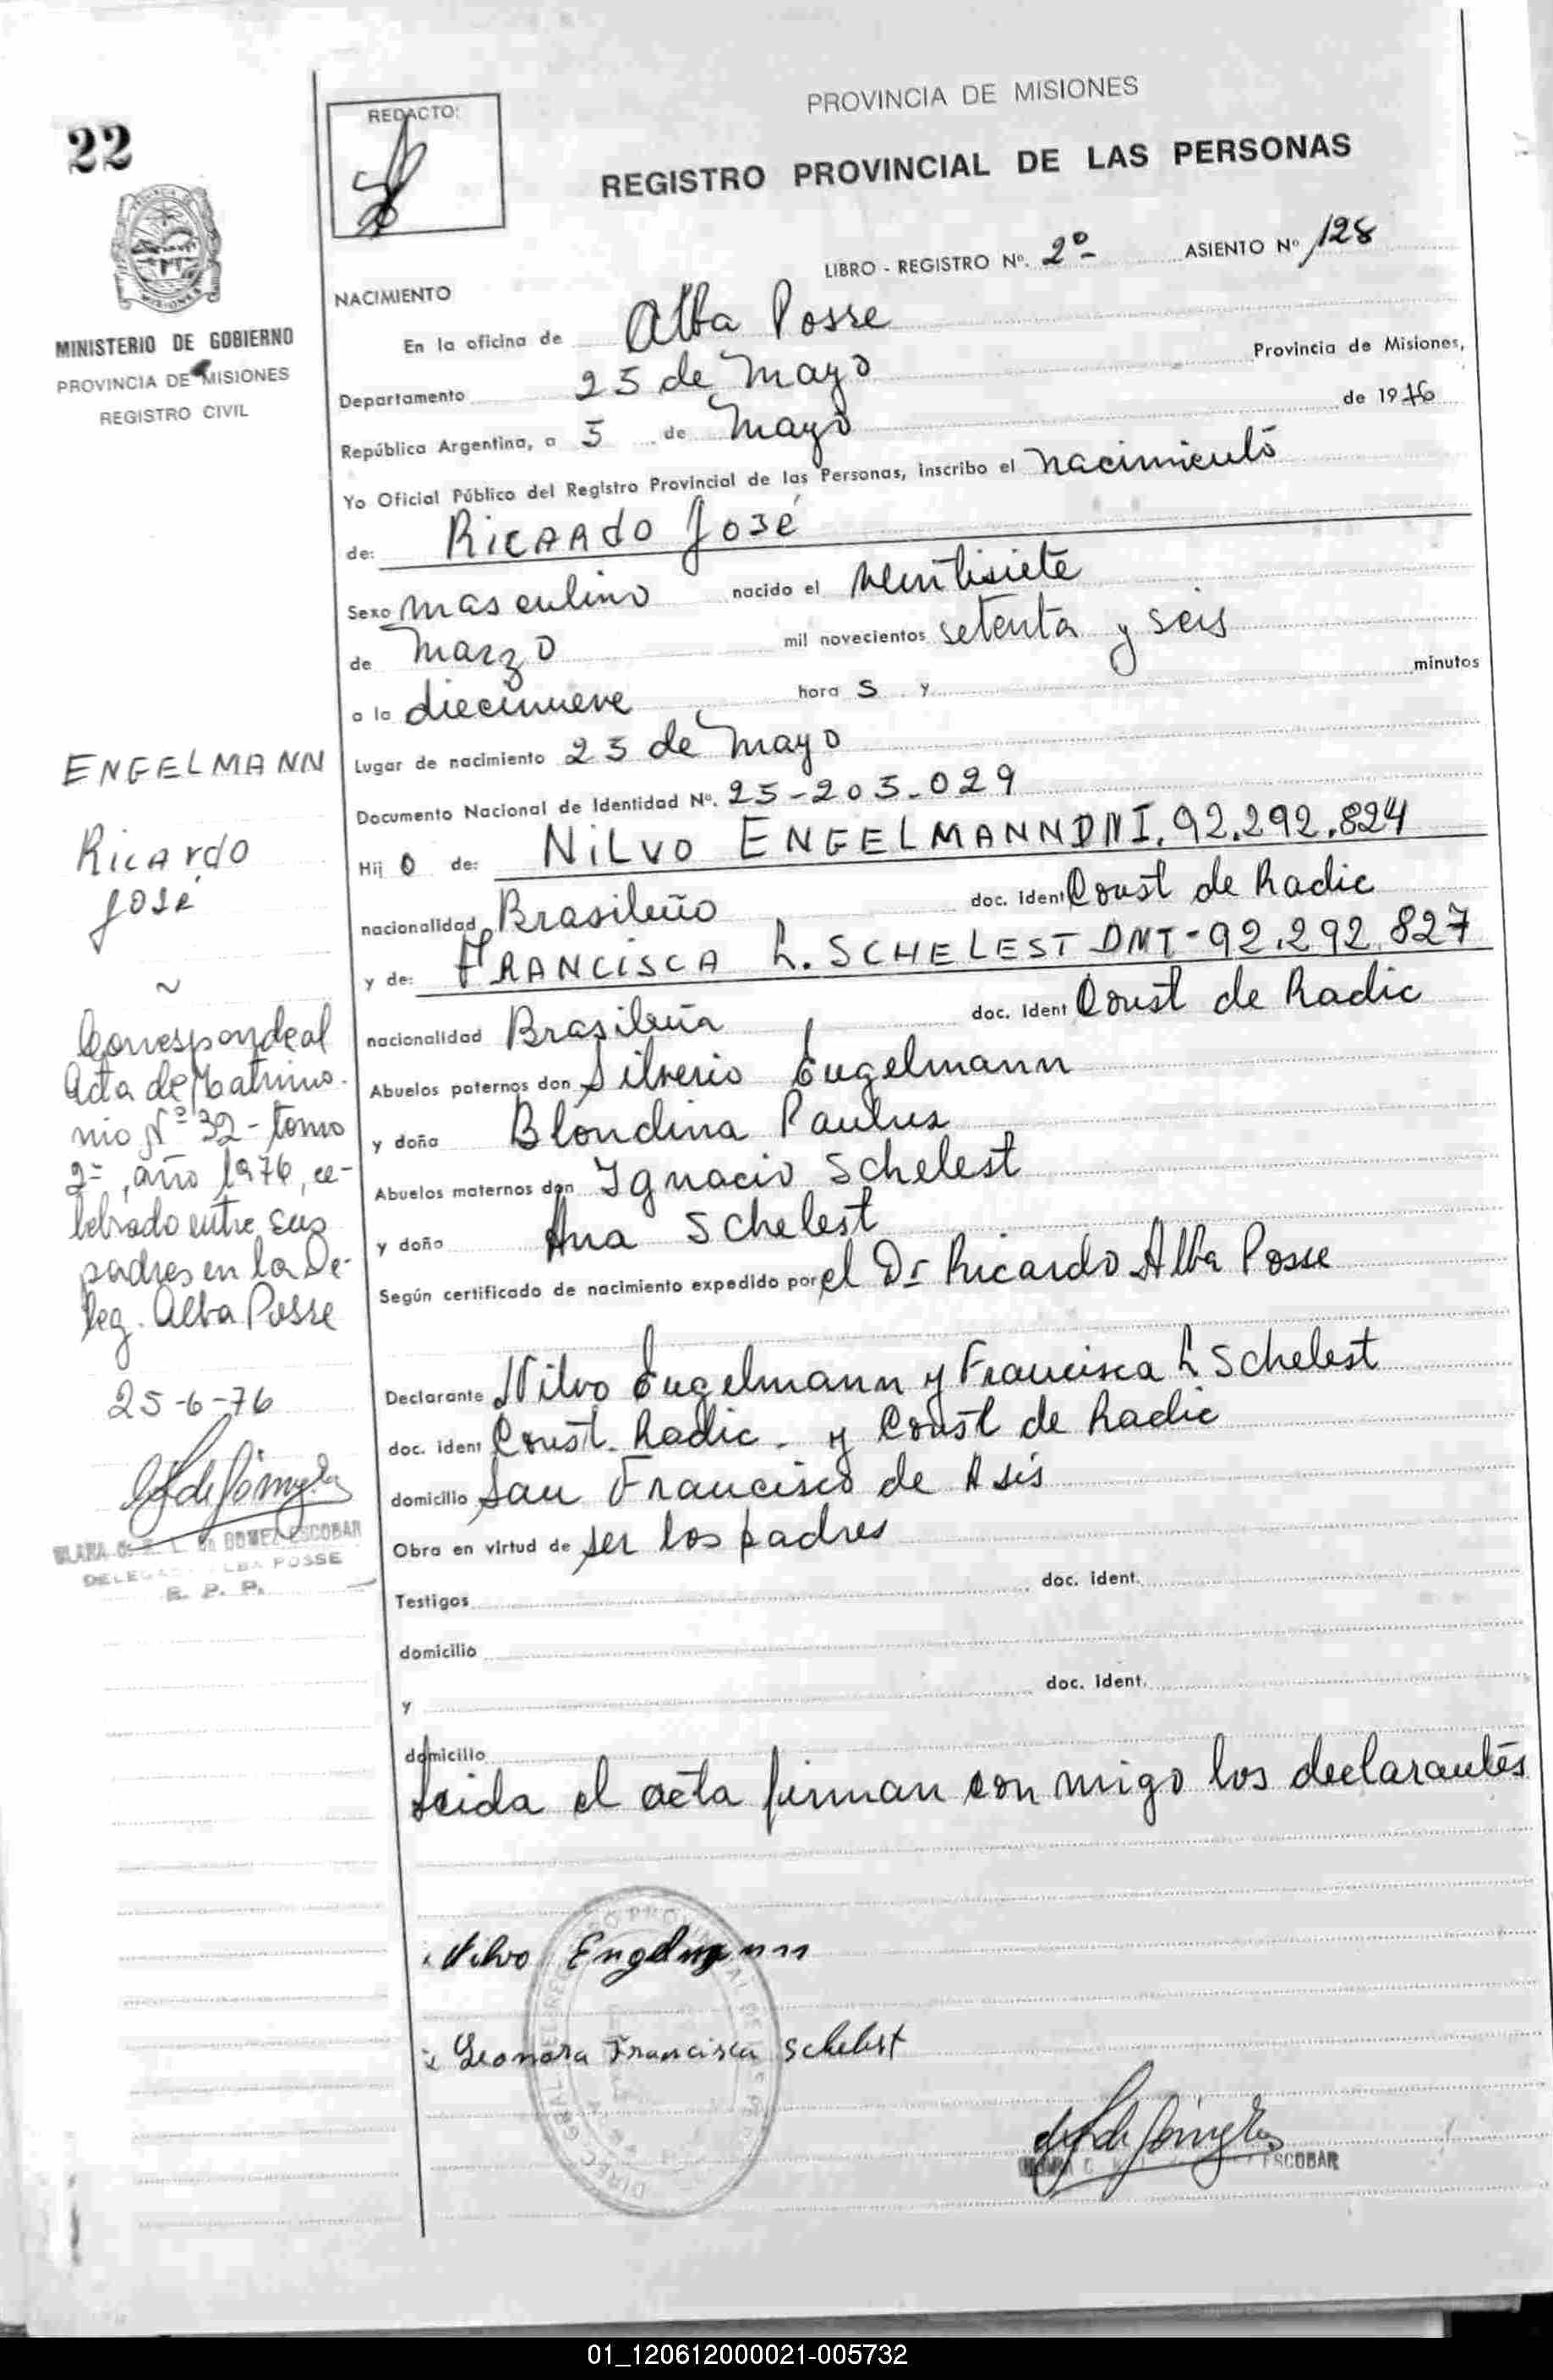 22
MINISTERIO DE GOBIERNO
PROVINCIA DE MISIONES
REGISTRO CIVIL
REDACTO:
PROVINCIA DE MISIONES
REGISTRO PROVINCIAL DE LAS PERSONAS
LIBRO - REGISTRO Nº. 2º ASIENTO Nº 128
NACIMIENTO
En la oficina de Alba Posse
Departamento 25 de Mayo Provincia de Misiones,
República Argentina, a 5 de Mayo de 1976
Yo Oficial Público del Registro Provincial de las Personas, inscribo el nacimiento
de: RICARDO José
Sexo masculino nacido el veintisiete
de Marzo mil novecientos setenta y seis
a la diecinueve hora s y minutos
Lugar de nacimiento 25 de Mayo
Documento Nacional de Identidad Nº. 25-205.029
Hij o de: NILVO ENGELMANN DNI. 92.292.824
nacionalidad Brasileño doc. ident Const de Radic
y de: FRANCISCA L. SCHELEST DNI-92.292.827
nacionalidad Brasileña doc. ident Const de Radic
Abuelos paternos don Silverio Engelmann
y doña Blondina Paulus
Abuelos maternos don Ignacio Schelest
y doña Ana Schelest
Según certificado de nacimiento expedido por el Dr Ricardo Alba Posse
Declarante Nilvo Engelmann y Francisca L Schelest
doc. ident Const. Radic. y Const de Radic
domicilio San Francisco de Asis
Obra en virtud de ser los padres
Testigos doc. ident.
domicilio
y doc. ident.
domicilio
Leida el acta firman con migo los declarantes
Nilvo Engelmann
Leonora Francisca Schelest
ESCOBAR
ENGELMANN
Ricardo
José
~
Corresponde al
Acta de Matrimo-
nio Nº 32 - tomo
2º, año 1976, ce-
lebrado entre sus
padres en la De-
leg. Alba Posse
25-6-76
GOMEZ ESCOBAR
ALBA POSSE
R. P. P.
01_120612000021-005732